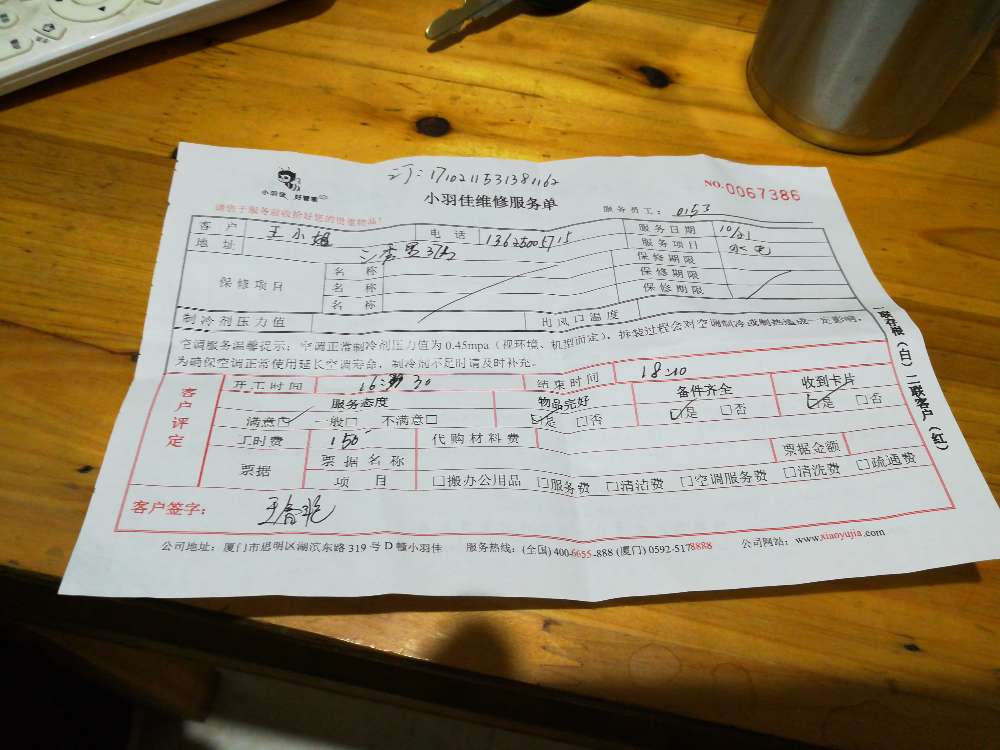 订:1710211531381162
小羽佳 好管家
小羽佳维修服务单
NO.0067386
请您于服务前收拾好您的贵重物品!
服务员工: 0153
客户 王小姐 电话 13625005715 服务日期 10/21
地址 服务项目 水电
保修项目 名称 保修期限
名称 保修期限
名称 保修期限
制冷剂压力值 出风口温度
空调服务温馨提示:空调正常制冷剂压力值为0.45mpa(视环境、机型而定),拆装过程会对空调制冷或制热造成一定影响,
为确保空调正常使用延长空调寿命,制冷剂不足时请及时补充。
一联存根(白)二联客户(红)
客户评定
开工时间 16:30 结束时间 18:10
服务态度 物品完好 备件齐全 收到卡片
满意☑ 一般□ 不满意□ ☑是 □否 ☑是 □否 ☑是 □否
工时费 150 代购材料费
票据 票据名称 票据金额
项目 □搬办公用品 □服务费 □清洁费 □空调服务费 □清洗费 □疏通费
客户签字:
公司地址:厦门市思明区湖滨东路319号D幢小羽佳 服务热线:(全国)400-6655-888 (厦门)0592-5178888 公司网站:www.xiaoyujia.com